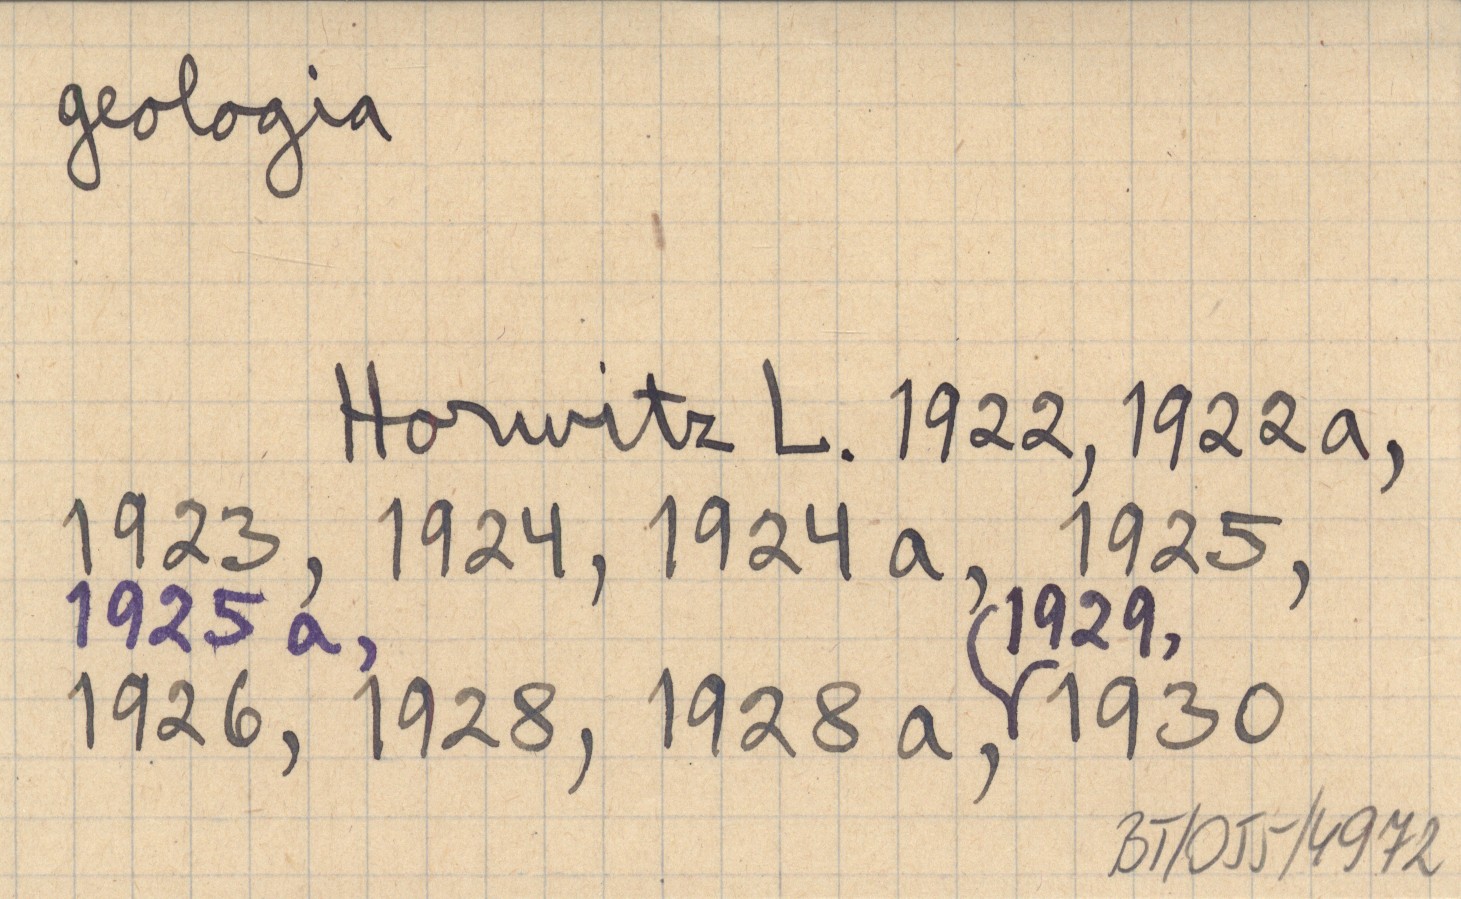 geologia
Horwitz L. 1922, 1922a,
1923, 1924, 1924a, 1925,
1925a,
1926, 1928, 1928a, 1929, 1930
BT/OJJ/4972